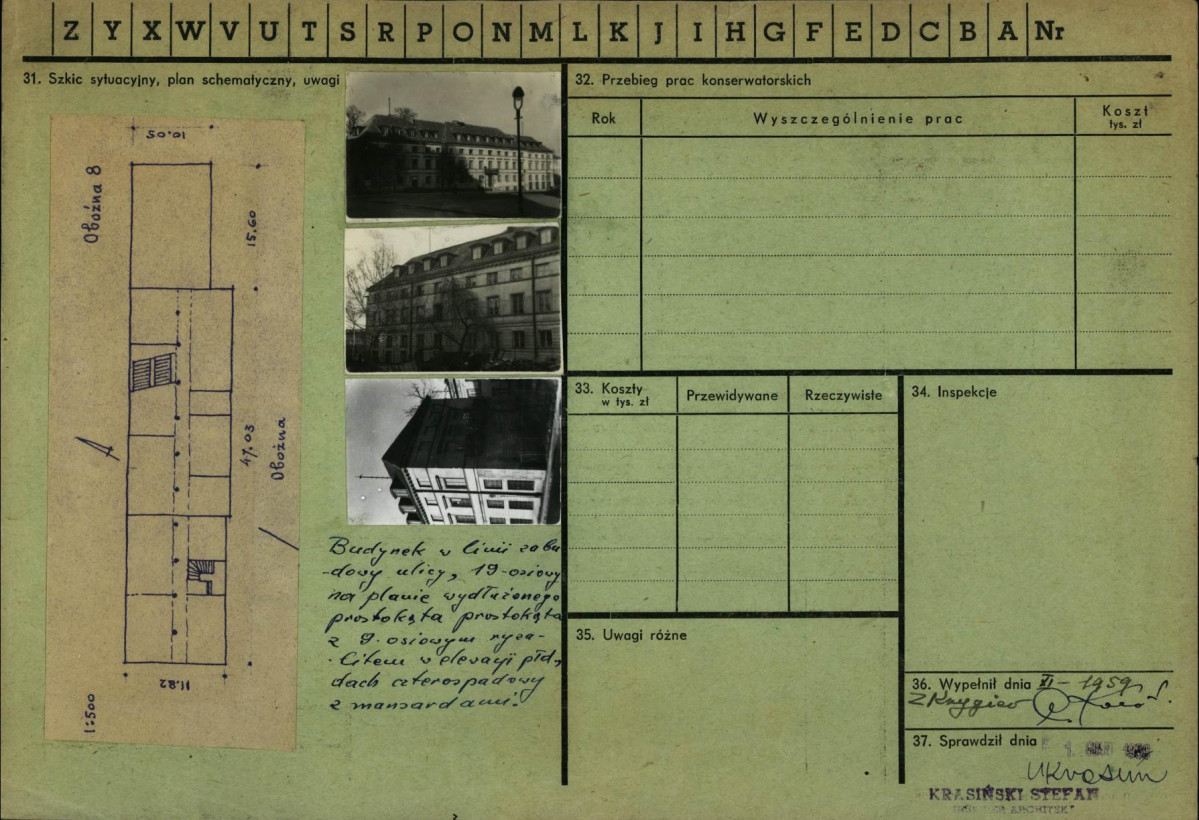 Z Y X W V U T S R P O N M L K J I H G F E D C B A Nr
31. Szkic sytuacyjny, plan schematyczny, uwagi
10.05
Oboźna 8
15.60
47.03
Oboźna
11.82
1:500
Budynek w linii zabu
-dowy ulicy, 19-osiowy
na planie wydłużonego
prostokąta prostokąta
z 9-osiowym ryza-
-litem w elewacji płd.,
dach czterospadowy
z mansardami.
32. Przebieg prac konserwatorskich
Rok
Wyszczególnienie prac
Koszt
tys. zł
33. Koszty
w tys. zł
Przewidywane
Rzeczywiste
34. Inspekcje
35. Uwagi różne
36. Wypełnił dnia XI - 1959 r.
37. Sprawdził dnia
KRASIŃSKI STEFAN